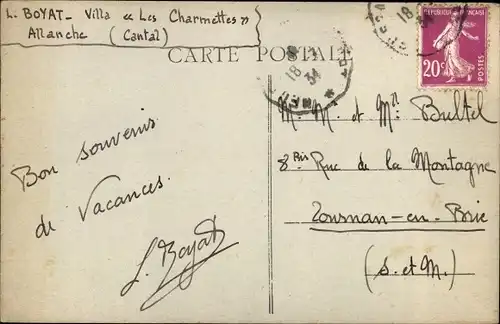 L. BOYAT - Villa « Les Charmettes »
Allanche (Cantal)
CARTE POSTALE
18
34
18
34
20c
POSTES
M. M. et Mll Bultel
8 Bis Rue de la Montagne
Tournan-en-Brie
(S. et M.)
Bon souvenir
de Vacances.
L. Boyat